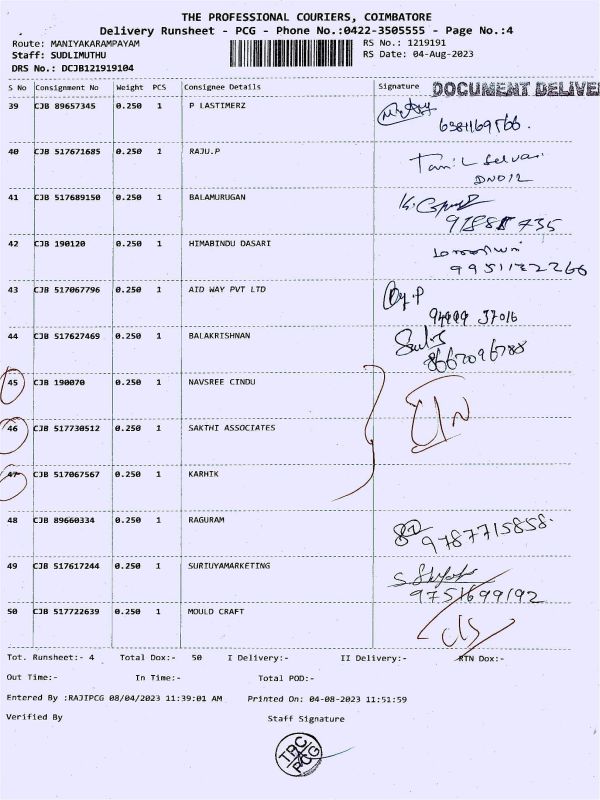 THE PROFESSIONAL COURIERS, COIMBATORE
Delivery Runsheet - PCG - Phone No.:0422-3505555 - Page No.:4
Route: MANIYAKARAMPAYAM RS No.: 1219191
Staff: SUDLIMUTHU RS Date: 04-Aug-2023
DRS No.: DCJB121919104
S No Consignment No Weight PCS Consignee Details Signature DOCUMENT DELIVE
39 CJB 89657345 0.250 1 P LASTIMERZ
40 CJB 517671685 0.250 1 RAJU.P Tamil Selvan
41 CJB 517689150 0.250 1 BALAMURUGAN
42 CJB 190120 0.250 1 HIMABINDU DASARI
43 CJB 517067796 0.250 1 AID WAY PVT LTD
94999 37016
44 CJB 517627469 0.250 1 BALAKRISHNAN
8667096788
45 CJB 190070 0.250 1 NAVSREE CINDU
46 CJB 517730512 0.250 1 SAKTHI ASSOCIATES
47 CJB 517067567 0.250 1 KARHIK
48 CJB 89660334 0.250 1 RAGURAM
9787715858.
49 CJB 517617244 0.250 1 SURIUYAMARKETING
9751699192
50 CJB 517722639 0.250 1 MOULD CRAFT
Tot. Runsheet:- 4 Total Dox:- 50 I Delivery:- II Delivery:- RTN Dox:-
Out Time:- In Time:- Total POD:-
Entered By :RAJIPCG 08/04/2023 11:39:01 AM Printed On: 04-08-2023 11:51:59
Verified By Staff Signature
TPC
PCG